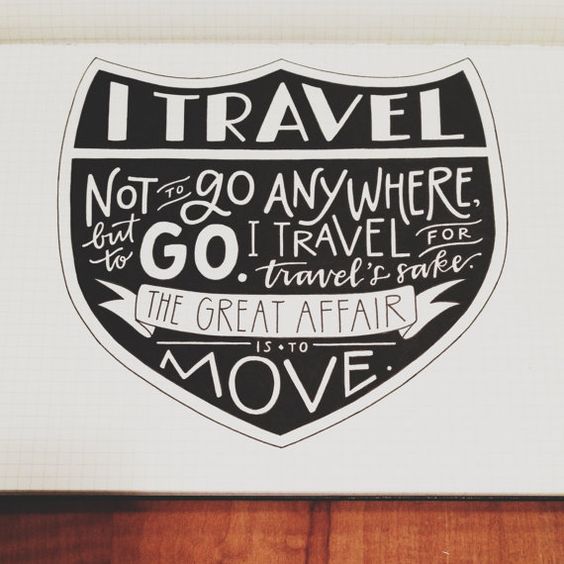 I TRAVEL
NOT TO GO ANYWHERE,
but to GO. I TRAVEL FOR
travel's sake.
THE GREAT AFFAIR
IS • TO
MOVE.